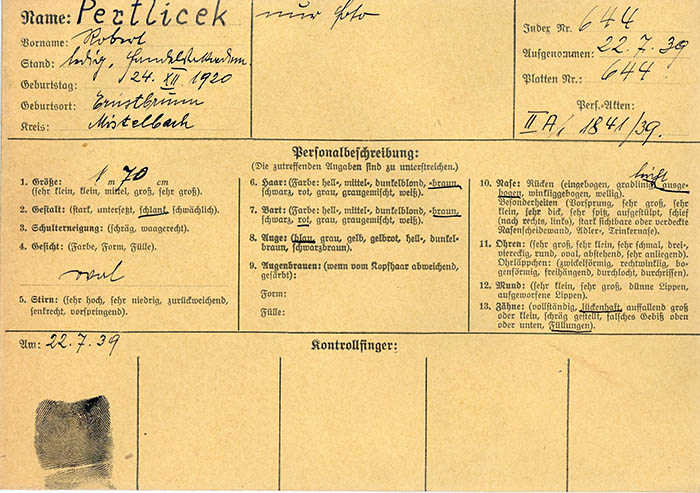 Name: Pertlicek
Vorname: Robert
Stand: ledig,
Geburtstag: 24. XII. 1920
Geburtsort: Ernstbrunn
Kreis: Mistelbach
nur Foto
Index Nr. 644
Aufgenommen: 22.7.39
Platten Nr.: 644
Pers.-Akten:
II A/, 1841/39.
Personalbeschreibung:
(Die zutreffenden Angaben sind zu unterstreichen.)
1. Größe: 1 m 70 cm
(sehr klein, klein, mittel, groß, sehr groß).
2. Gestalt: (stark, untersetzt, schlank, schwächlich).
3. Schulterneigung: (schräg, waagerecht).
4. Gesicht: (Farbe, Form, Fülle).
oval
5. Stirn: (sehr hoch, sehr niedrig, zurückweichend,
senkrecht, vorspringend).
6. Haar: (Farbe: hell-, mittel-, dunkelblond, -braun,
schwarz, rot, grau, graugemischt, weiß).
7. Bart: (Farbe: hell-, mittel-, dunkelblond, -braun,
schwarz, rot, grau, graugemischt, weiß).
8. Auge: (blau, grau, gelb, gelbrot, hell-, dunkel-
braun, schwarzbraun).
9. Augenbrauen: (wenn vom Kopfhaar abweichend,
gefärbt):
Form:
Fülle:
leicht
10. Nase: Rücken (eingebogen, gradlinig, ausge-
bogen, winkliggebogen, wellig).
Besonderheiten (Vorsprung, sehr groß, sehr
klein, sehr dick, sehr spitz, aufgestülpt, schief
(nach rechts, links), stark sichtbare oder verdeckte
Nasenscheidewand, Adler-, Trinkernase).
11. Ohren: (sehr groß, sehr klein, sehr schmal, drei-
viereckig, rund, oval, abstehend, sehr anliegend).
Ohrläppchen: (zwickelförmig, rechtwinklig, bo-
genförmig, freihängend, durchlocht, durchrissen).
12. Mund: (sehr klein, sehr groß, dünne Lippen,
aufgeworfene Lippen).
13. Zähne: (vollständig, lückenhaft, auffallend groß
oder klein, schräg gestellt, falsches Gebiß oben
oder unten, Füllungen).
Am: 22.7.39
Kontrollfinger: